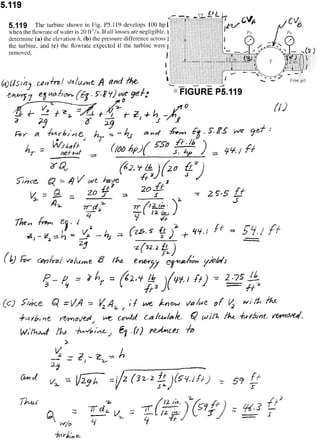 5.119
5.119 The turbine shown in Fig. P5.119 develops 100 hp
when the flowrate of water is 20 ft³/s. If all losses are negligible,
determine (a) the elevation h, (b) the pressure difference across
the turbine, and (c) the flowrate expected if the turbine were
removed.
CV_A
CV_B
P₃
P₄
T
(2)
Free jet
FIGURE P5.119
(a) Using control volume A and the
energy equation (Eq. 5.84) we get:
P₂/γ + V₂²/2g + z₂ = P₁/γ + V₁²/2g + z₁ + h_s - h_L (1)
For a turbine, h_T = -h_s and from Eq. 5.85 we get:
h_T = W_shaft net out / γQ = (100 hp)(550 ft.lb / s.hp) / (62.4 lb/ft³)(20 ft³/s) = 44.1 ft
Since Q = AV we have
V₂ = Q/A₂ = 20 ft³/s / (πd₂²/4) = 20 ft³/s / (π/4 (12 in. / 12 in./ft)²) = 25.5 ft/s
Then from Eq. 1
z₁ - z₂ = h = V₂²/2g - h_s = (25.5 ft/s)² / 2(32.2 ft/s²) + 44.1 ft = 54.1 ft
(b) For control volume B the energy equation yields
P₃ - P₄ = γ h_T = (62.4 lb/ft³)(44.1 ft) = 2.75 lb/ft²
(c) Since Q = VA = V₂A₂, if we knew value of V₂ with the
turbine removed, we could calculate Q with the turbine removed.
Without the turbine, Eq. (1) reduces to
V₂²/2g = z₁ - z₂ = h
and V₂ = √2gh = √2(32.2 ft/s²)(54.1 ft) = 59 ft/s
Thus
Q w/o turbine = πd₂²/4 V₂ = π/4 (12 in. / 12 in./ft)² (59 ft/s) = 46.3 ft³/s